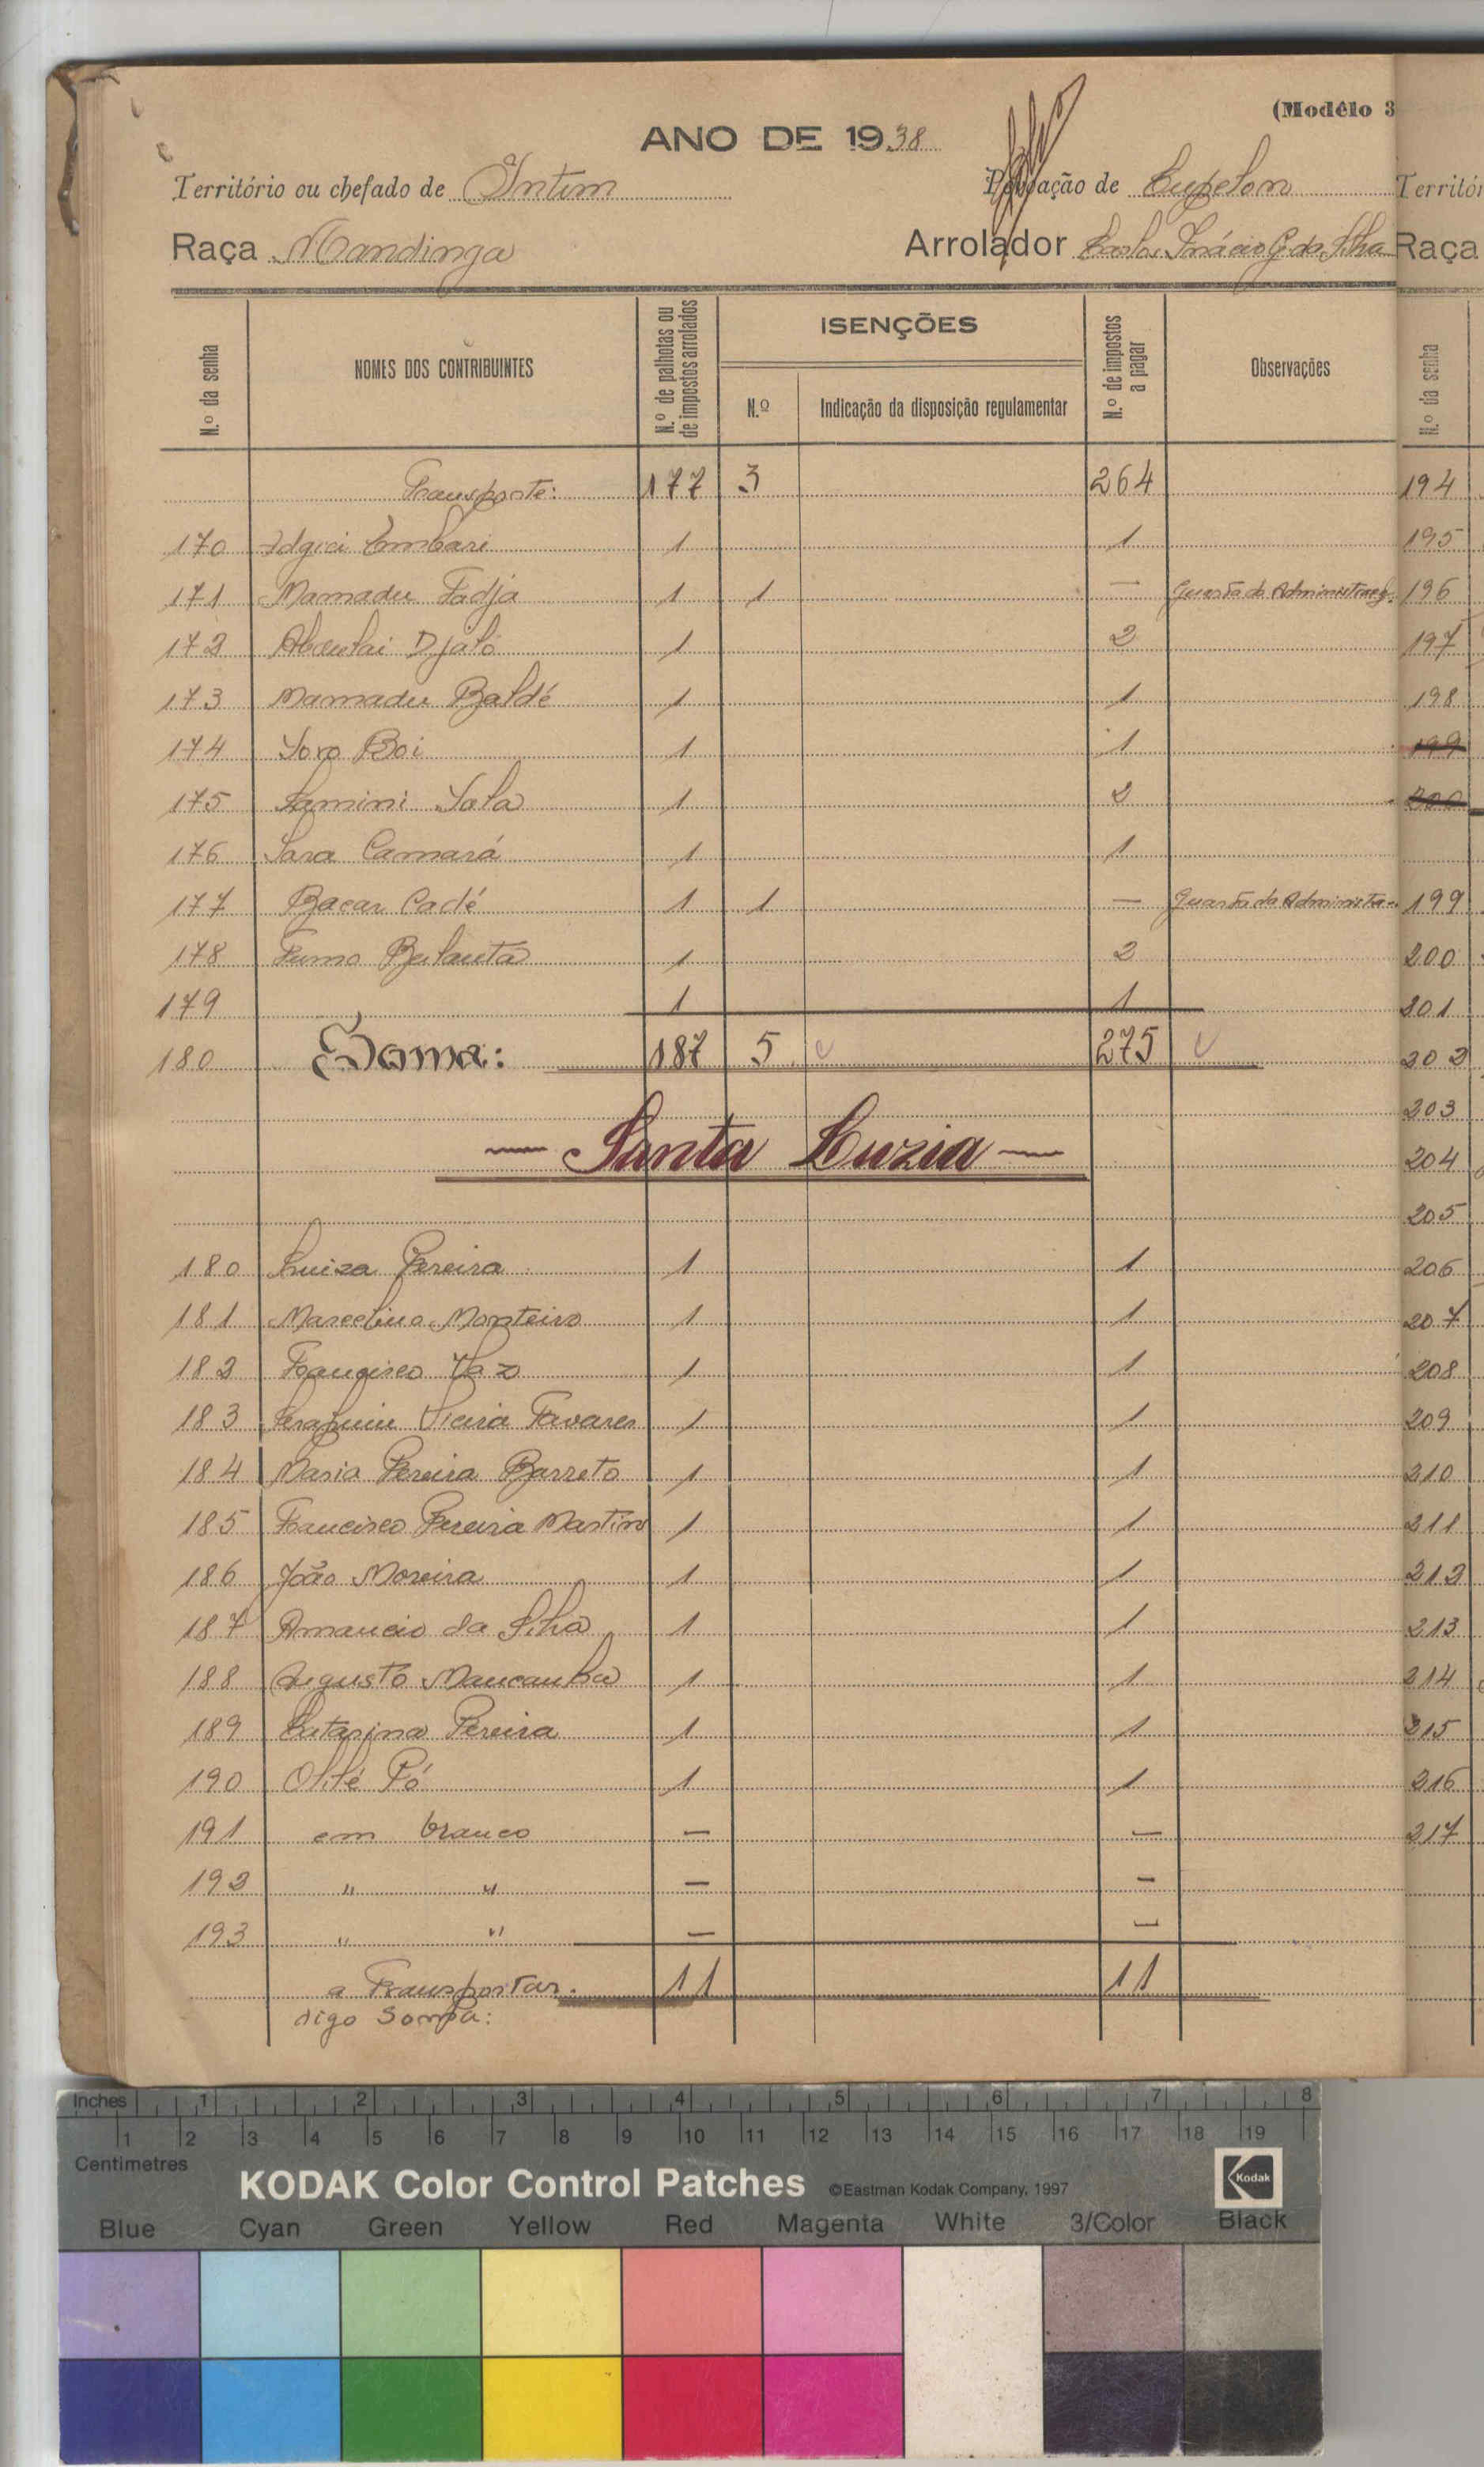 (Modêlo 3
ANO DE 1938
Território ou chefado de Intim
Povoação de Cupelon
Raça Mandinga
Arrolador Carlos Inácio G. da Silva
N.º da senha
NOMES DOS CONTRIBUINTES
N.º de palhotas ou de impostos arrolados
ISENÇÕES
N.º
Indicação da disposição regulamentar
N.º de impostos a pagar
Observações
Transporte: 177 3 264
170 Embari 1 1
171 Mamadu Fadja 1 1 — Guarda da Administraç.
172 Abdulai Djaló 1 2
173 Mamadu Baldé 1 1
174 Soro Boi 1 1
175 Lamini 1 2
176 Camará 1 1
177 Bacar Cadé 1 1 — Guarda da Administra
178 Balanta 1 2
179 1 1
180 Soma: 187 5 275
— Santa Luzia —
180 Luiza Pereira 1 1
181 Marcelino Monteiro 1 1
182 Francisco Vaz 1 1
183 Serafim Vieira Tavares 1 1
184 Maria Pereira Barreto 1 1
185 Francisco Pereira Martins 1 1
186 João Moreira 1 1
187 Amancio da Silva 1 1
188 Augusto Mancanha 1 1
189 Catarina Pereira 1 1
190 Olité Pó 1 1
191 em branco — —
192 " " — —
193 " " — —
a Transportar. 11 11
digo Soma:
Territór
Raça
N.º da senha
194
195
196
197
198
199
200
199
200
201
202
203
204
205
206
207
208
209
210
211
212
213
214
215
216
217
Inches 1 2 3 4 5 6 7 8
1 2 3 4 5 6 7 8 9 10 11 12 13 14 15 16 17 18 19
Centimetres
KODAK Color Control Patches ©Eastman Kodak Company, 1997 Kodak
Blue Cyan Green Yellow Red Magenta White 3/Color Black